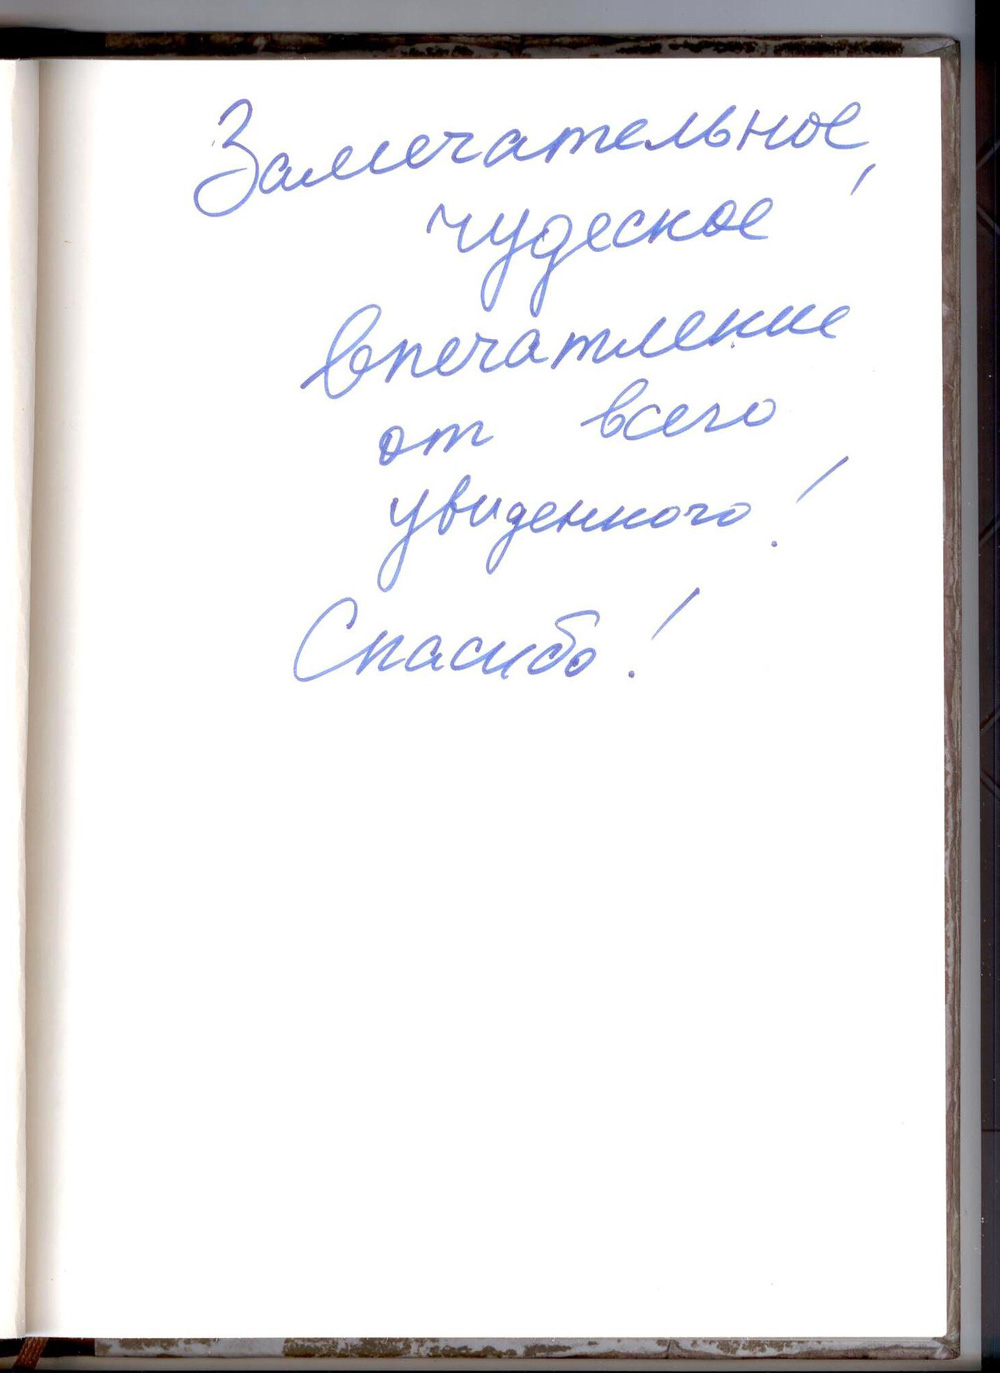 Замечательное,
чудеское
впечатление
от всего
увиденного!
Спасибо!